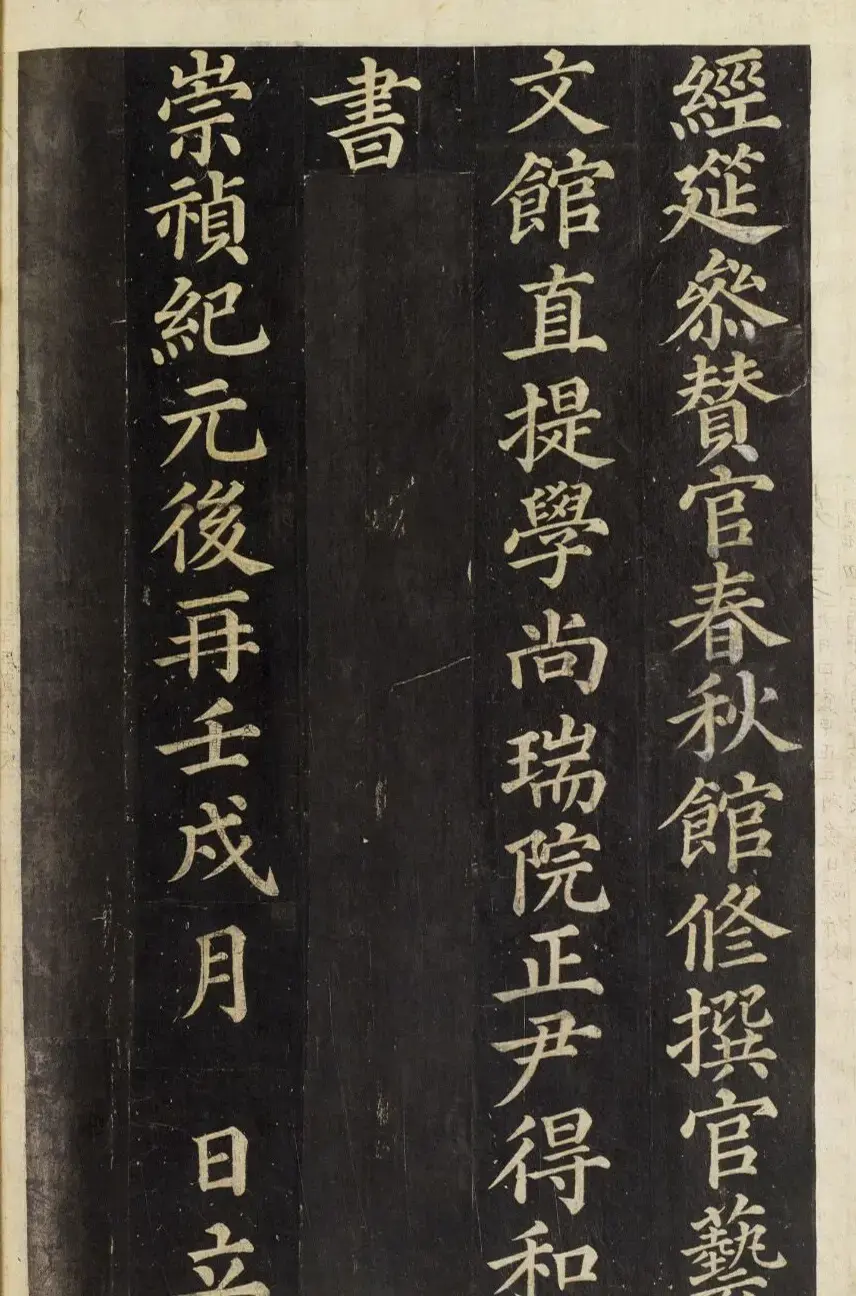 經筵參贊官春秋館修撰官藝
文館直提學尚瑞院正尹得和
書
崇禎紀元後再壬戌月 日立